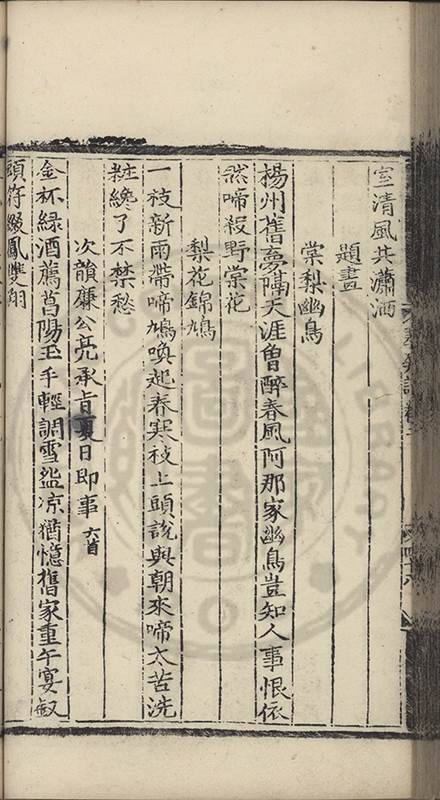 室清風共瀟洒
題畫
棠梨幽鳥
揚州舊夢隔天涯曾醉春風阿那家幽鳥豈知人事恨依
然啼殺野棠花
梨花錦鳩
一枝新雨帶啼鳩喚起春寒枝上頭說與朝來啼太苦洗
粧纔了不禁愁
次韻廉公亮承旨夏日即事六首
金杯綠酒薦菖陽玉手輕調雪盌凉猶憶舊家重午宴釵
頭符綴鳳雙翔